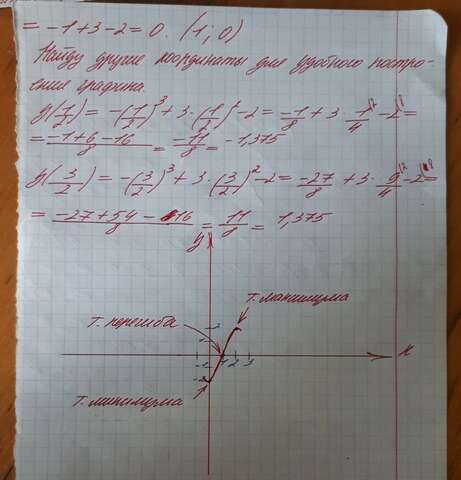 = -1+3-2=0. (1; 0)
Найду другие координаты для удобного постро-
ение графика.
y(1/2) = -(1/2)³ + 3·(1/2)² - 2 = -1/8 + 3·1/4 - 2 =
= (-1+6-16)/8 = -11/8 = -1,375
y(3/2) = -(3/2)³ + 3·(3/2)² - 2 = -27/8 + 3·9/4 - 2 =
= (-27+54-16)/8 = 11/8 = 1,375
y
т. максимума
т. перегиба
x
1 2 3
т. минимума